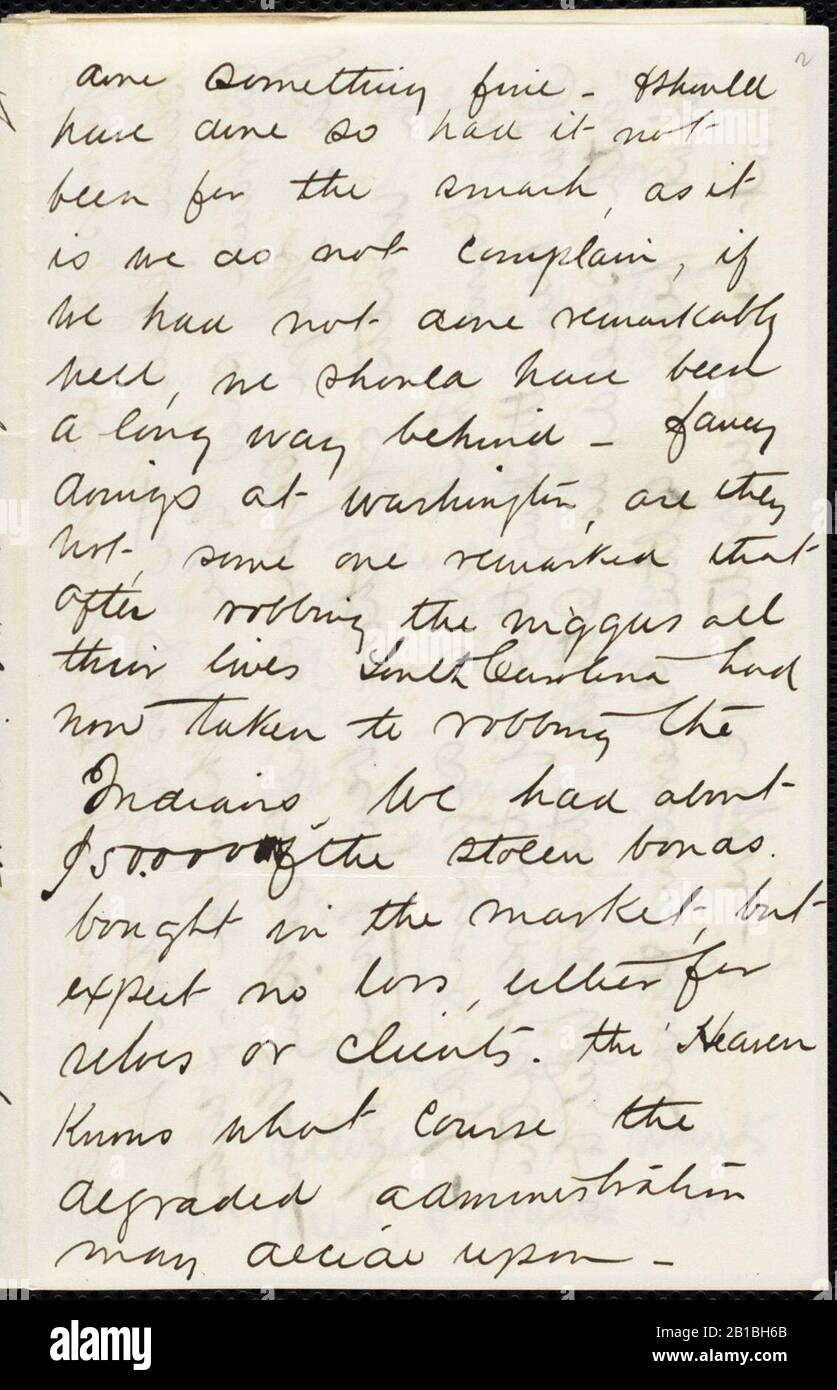 2
done something fine - & should
have done so had it not
been for the smash, as it
is we do not complain, if
we had not done remarkably
well, we should have been
a long way behind - fancy
doings at Washington, are they
not, some one remarked that
after robbing the niggers all
their lives South Carolina had
now taken to robbing the
Indians, We had about
$50.000 of the stolen bonds.
bought in the market, but
expect no loss, either for
selves or clients. tho' Heaven
Knows what course the
degraded administration
may decide upon -
alamy
Image ID: 2B1BH6B
www.alamy.com